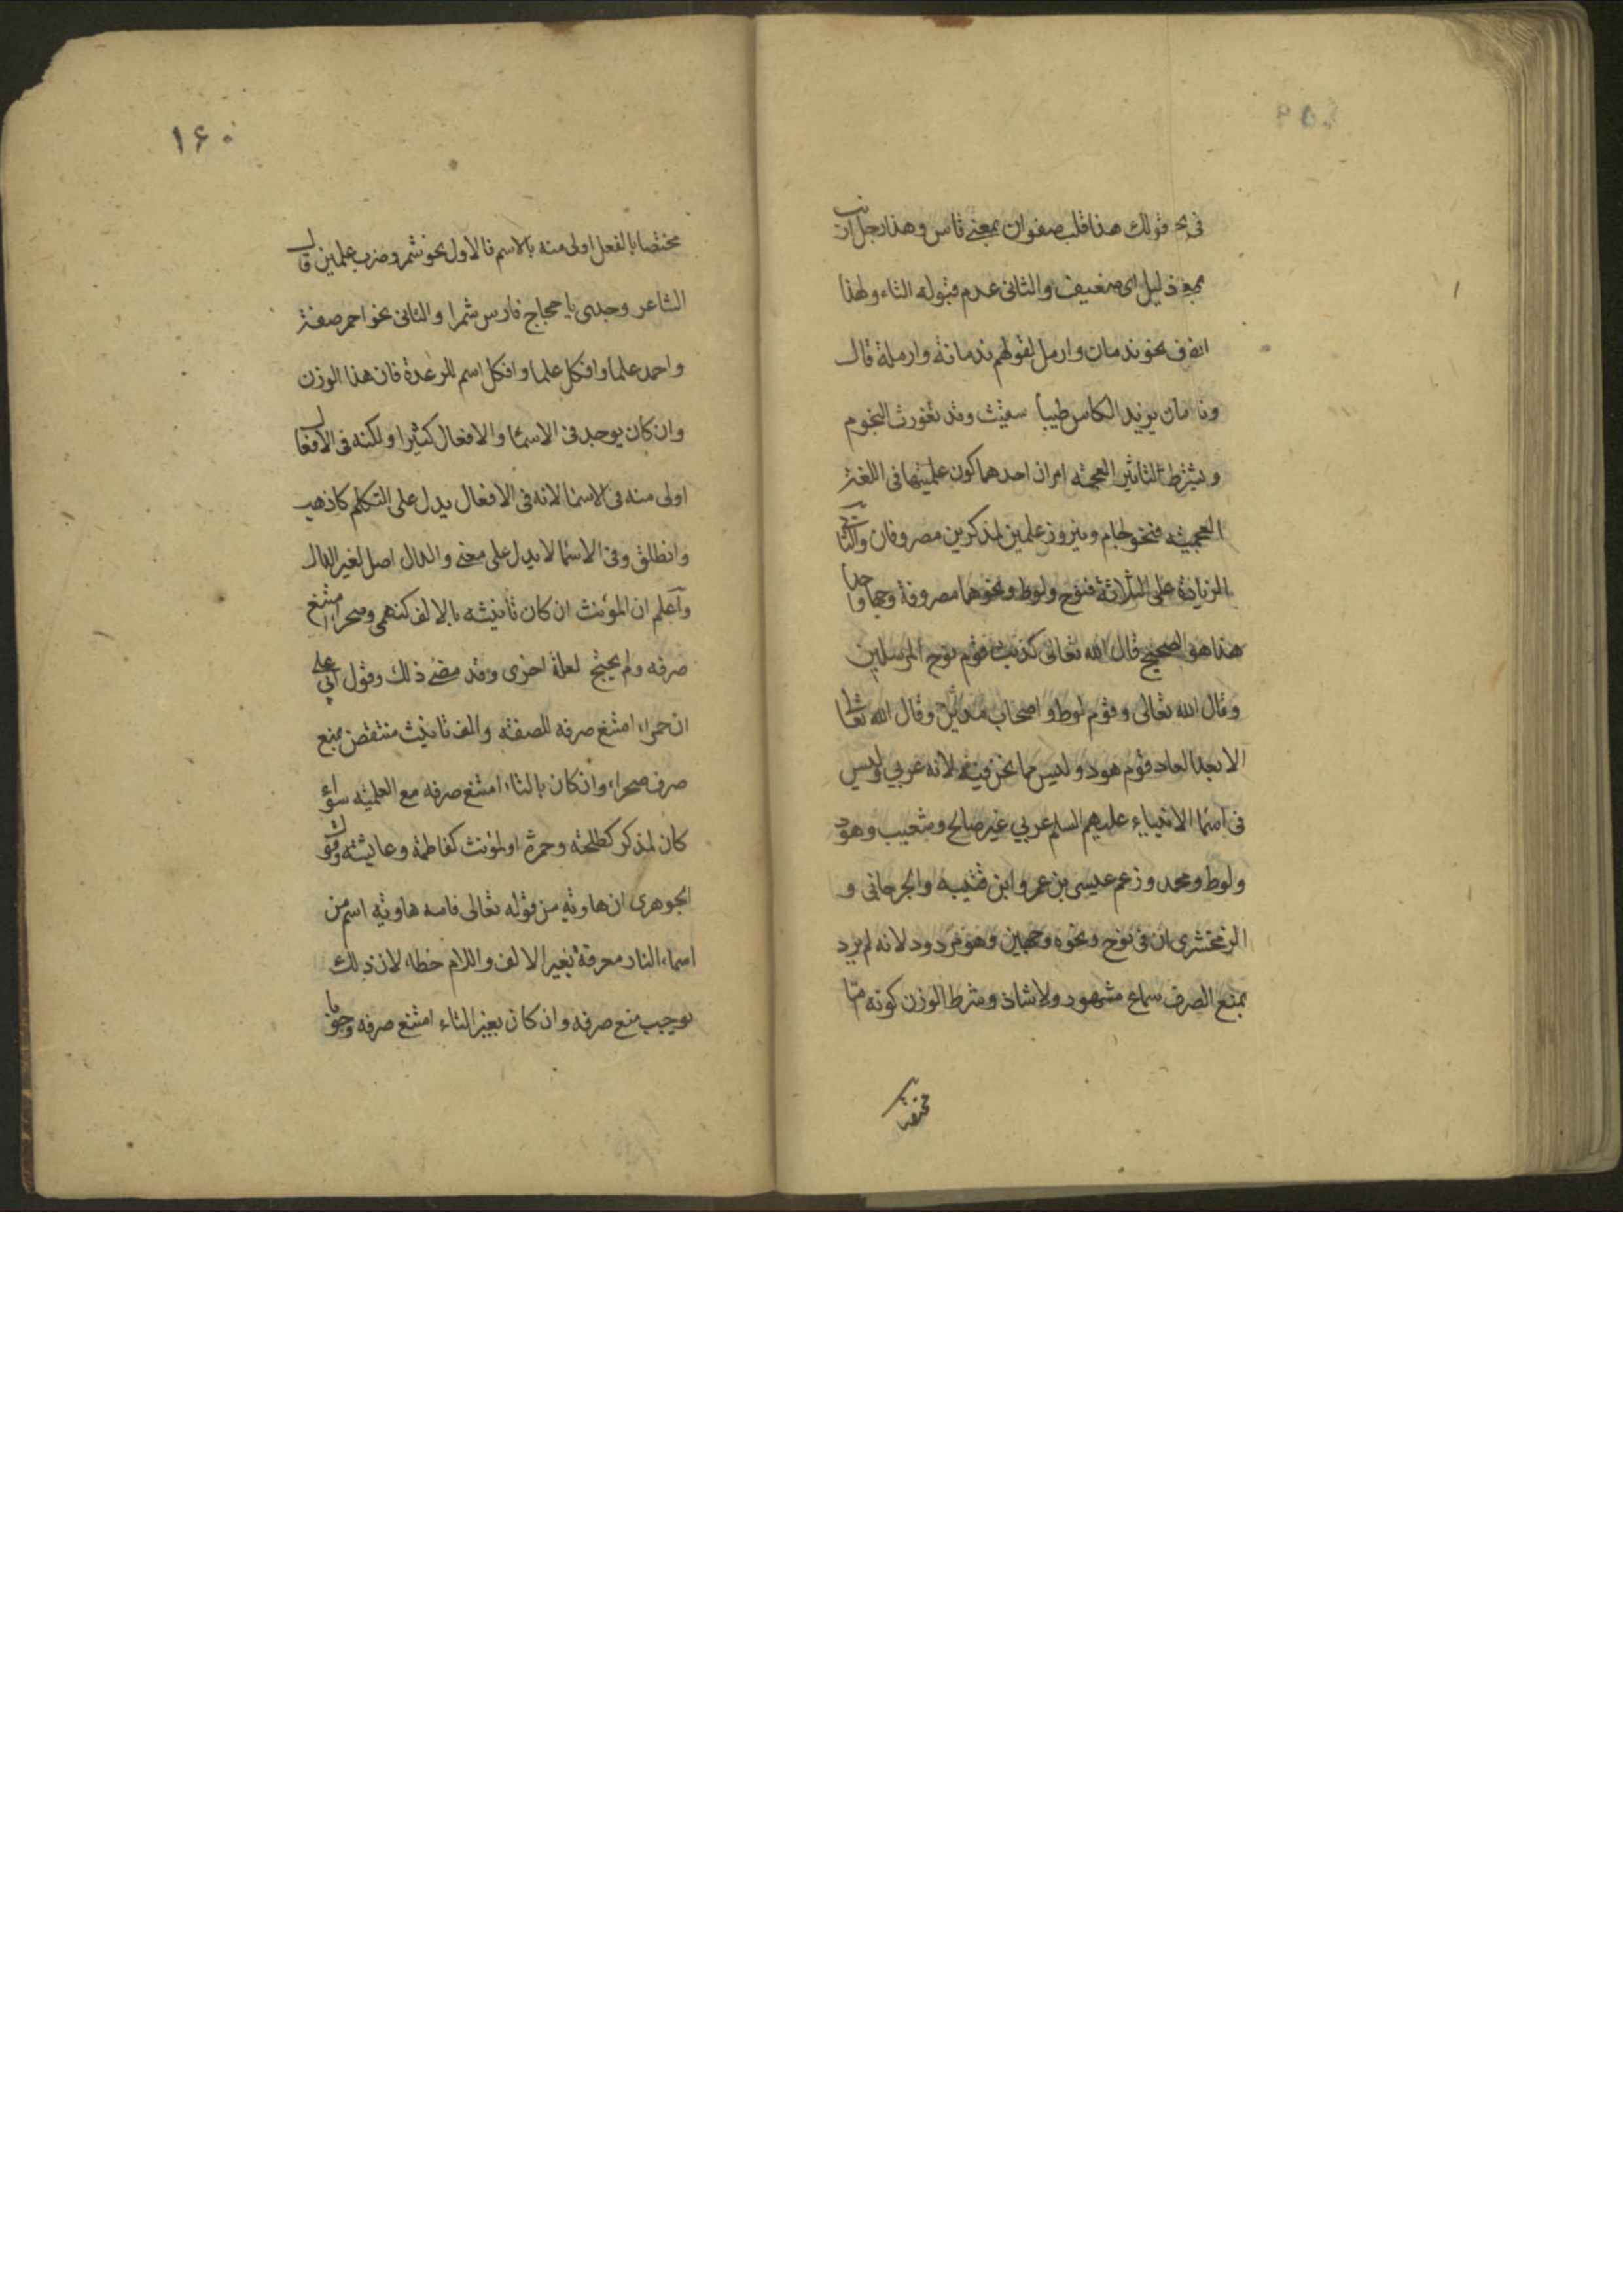 فى نحو قولك هذا قلب صفوان بمعنى قاس وهذا رجل ارنب
بمعنى ذليل اى ضعيف والثانى عدم قبوله التاء ولهذا
انصرف نحو ندمان وارمل لقولهم ندمانة وارملة قال
وندمان يزيد الكاس طيبا سقيت وقد تغورت النجوم
ويشترط لتاثير العجمة امران احدهما كون علميتها فى اللغة
العجمية فنحو لجام وفيروز علمين لمذكرين مصروفان والثانى
الزيادة على الثلاثة فنوح ولوط ونحوهما مصروفة وجها واحدا
هذا هو الصحيح قال الله تعالى كذبت قوم نوح المرسلين
وقال الله تعالى وقوم لوط واصحاب مدين وقال الله تعالى
الا بعدا لعاد قوم هود وليس مما نحن فيه لانه عربي وليس
فى اسما الانبياء عليهم السلم عربي غير صالح وشعيب وهود
ولوط ومحمد وزعم عيسى بن عمر وابن قتيبه والجرجانى و
الزمخشرى ان فى نوح ونحوه وجهين وهو مردود لانه لم يرد
بمنع الصرف سماع مشهور ولا شاذ وشرط الوزن كونه امّا
مختصا
١۶٠
مختصا بالفعل اولى منه بالاسم فالاول نحو شمر وضرب علمين قال
الشاعر وجدى يا حجاج فارس شمرا والثانى نحو احمر صفة
واحمد علما وافكل علما وافكل اسم للرعدة فان هذا الوزن
وان كان يوجد فى الاسما والافعال كثيرا ولكنه فى الافعال
اولى منه فى الاسما لانه فى الافعال يدل على التكلم كاذهب
وانطلق وفى الاسما لا يدل على معنى والدال اصل لغير الدال
وآعلم ان المؤنث ان كان تأنيثه بالالف كبهمى وصحراء امتنع
صرفه ولم يحتج لعلة اخرى وقد مضى ذلك وقول ابي على
ان حمراء امتنع صرفه للصفة والف تانيث منتقض بمنع
صرف صحراء وان كان بالتاء امتنع صرفه مع العلمية سواء
كان لمذكر كطلحة وحمزة او لمؤنث كفاطمة وعايشة وقول
الجوهرى ان هاوية من قوله تعالى فامه هاوية اسم من
اسماء النار معرفة بغير الالف واللام خطاء لان ذلك
يوجب منع صرفه وان كان بغير التاء امتنع صرفه وجوبا